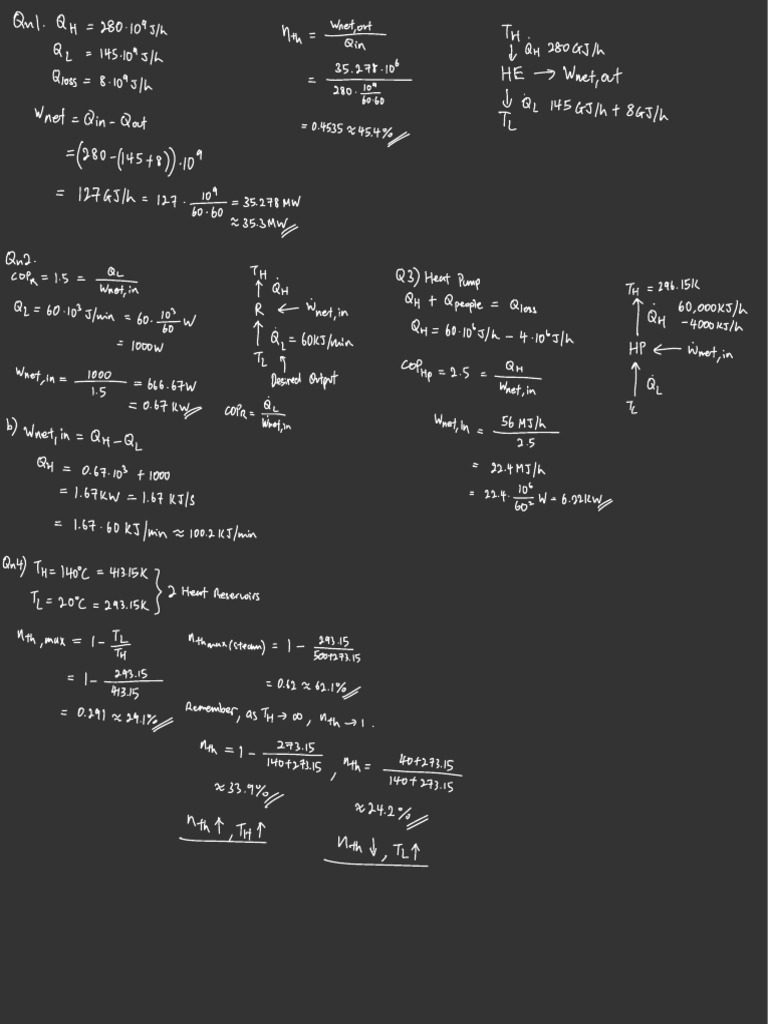 Qn1. Q_H = 280·10⁹ J/h
Q_L = 145·10⁹ J/h
Q_loss = 8·10⁹ J/h
W_net = Q_in − Q_out
= (280 − (145+8))·10⁹
= 127 GJ/h = 127 · 10⁹/(60·60) = 35.278 MW
≈ 35.3 MW
η_th = W_net,out / Q_in
= 35.278·10⁶ / (280 · 10⁹/(60·60))
= 0.4535 ≈ 45.4%
T_H
↓ Q̇_H 280 GJ/h
HE → Ẇ_net,out
↓ Q̇_L 145 GJ/h + 8 GJ/h
T_L
Qn2.
COP_R = 1.5 = Q_L / W_net,in
Q_L = 60·10³ J/min = 60 · 10³/60 W
= 1000 W
W_net,in = 1000 / 1.5 = 666.67 W
= 0.67 KW
b) W_net,in = Q_H − Q_L
Q_H = 0.67·10³ + 1000
= 1.67 KW = 1.67 KJ/s
= 1.67·60 KJ/min ≈ 100.2 KJ/min
T_H
↑ Q̇_H
R ← Ẇ_net,in
↑ Q̇_L = 60 KJ/min
T_L ↑
Desired Output
COP_R = Q̇_L / Ẇ_net,in
Q3) Heat Pump
Q_H + Q_people = Q_loss
Q_H = 60·10⁶ J/h − 4·10⁶ J/h
COP_Hp = 2.5 = Q_H / W_net,in
W_net,in = 56 MJ/h / 2.5
= 22.4 MJ/h
= 22.4 · 10⁶/60² W = 6.22 KW
T_H = 296.15K
↑ Q̇_H 60,000 KJ/h
−4000 KJ/h
HP ← Ẇ_net,in
↑ Q̇_L
T_L
Qn4) T_H = 140°C = 413.15K
T_L = 20°C = 293.15K
} 2 Heat Reservoirs
η_th,max = 1 − T_L/T_H
= 1 − 293.15/413.15
= 0.291 ≈ 29.1%
η_th max (steam) = 1 − 293.15/(500+273.15)
= 0.62 ≈ 62.1%
Remember, as T_H → ∞, η_th → 1.
η_th = 1 − 273.15/(140+273.15), η_th = (40+273.15)/(140+273.15)
≈ 33.9%
≈ 24.2%
η_th ↑, T_H ↑
η_th ↓, T_L ↑